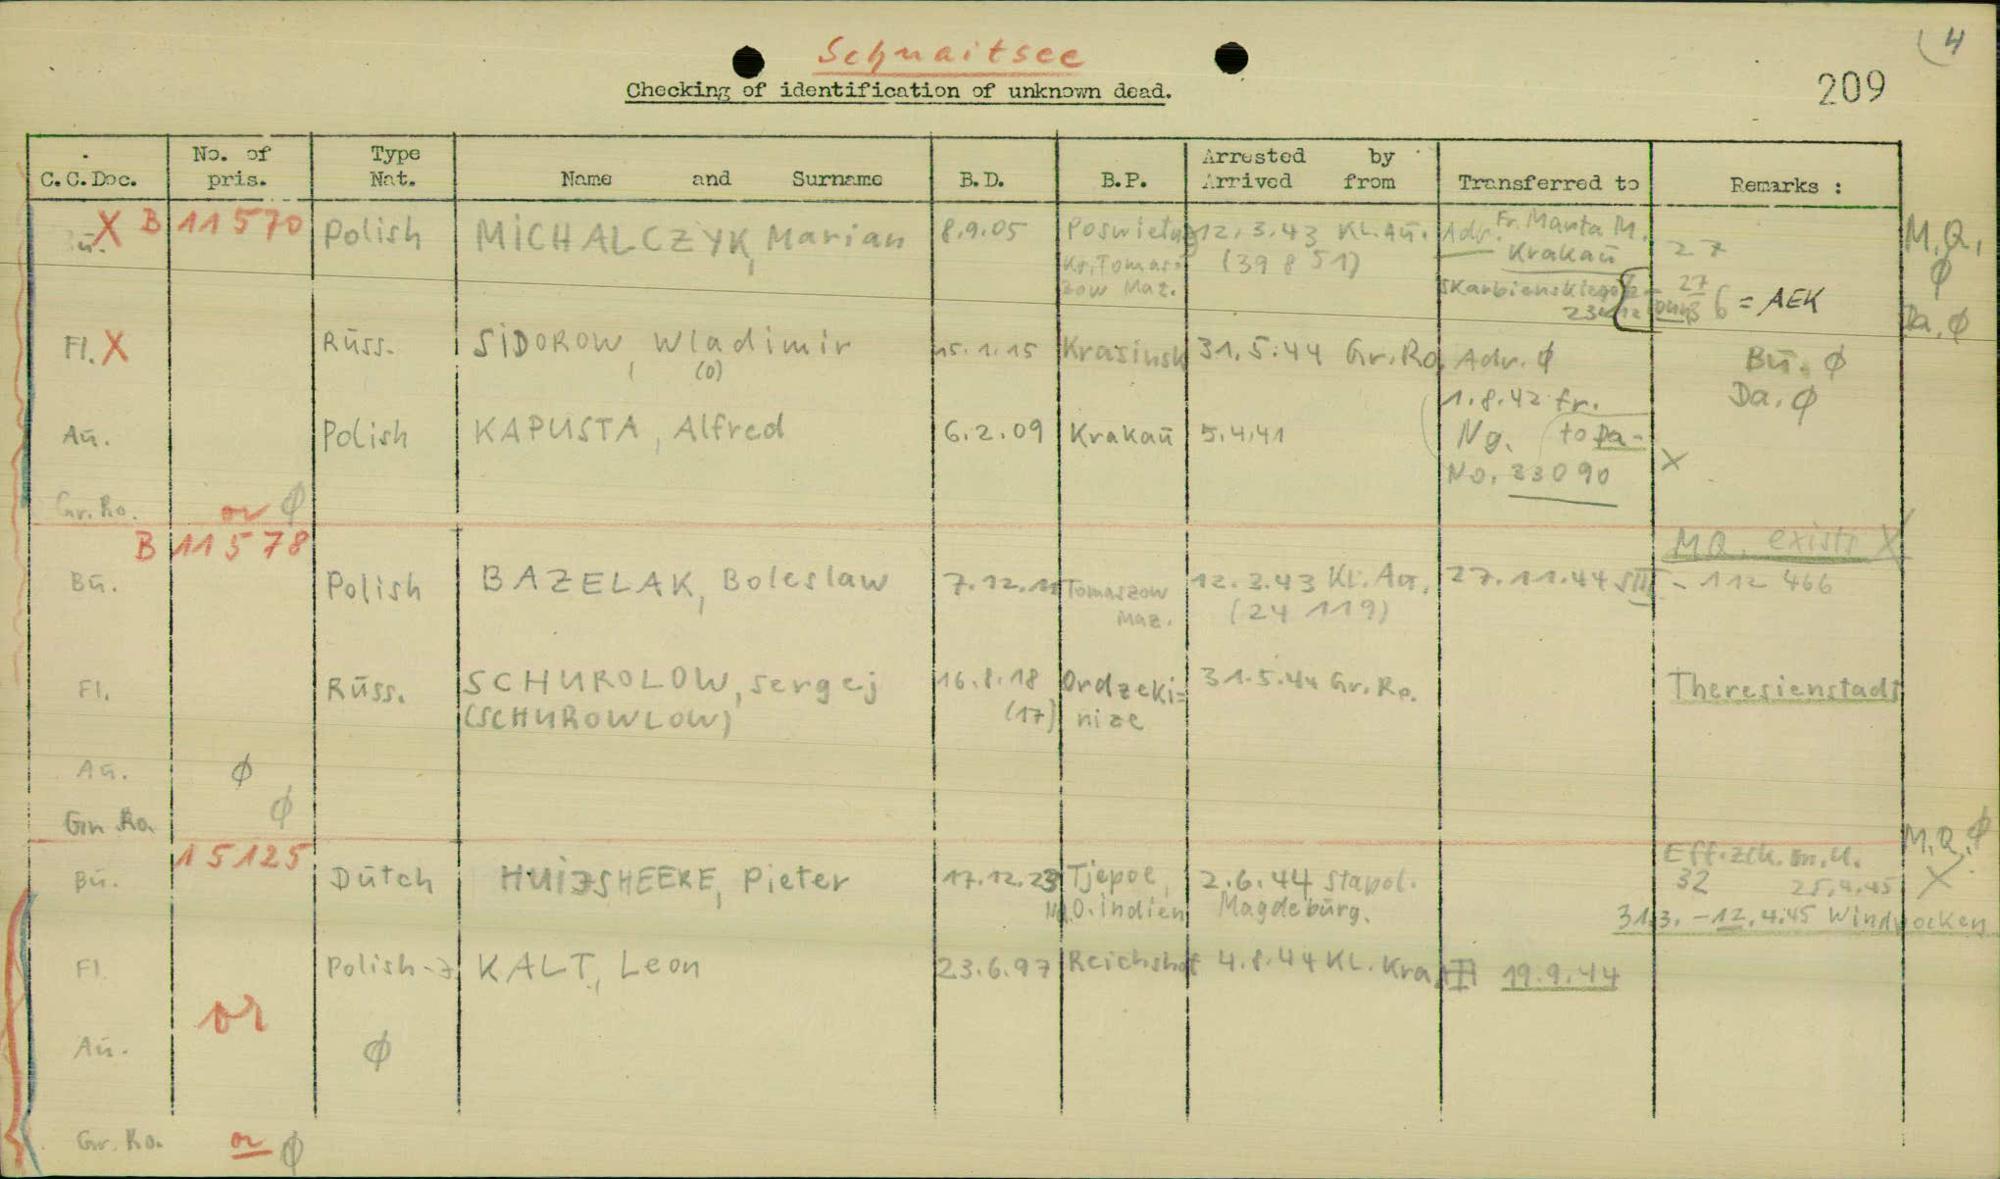 4
Schnaitsee
209
Checking of identification of unknown dead.
C.C.Doc. No. of pris. Type Nat. Name and Surname B.D. B.P. Arrested by Arrived from Transferred to Remarks :
Bū. X B 11570 Polish MICHALCZYK, Marian 8.9.05 12.3.43 KL.Aū. Adr. Fr. Manta M. 27 M.Q. ø
Kr. Tomas- (39851) Krakaū
zow Maz. Skarbienskiego 27
6 = AEK Da. ø
Fl. X Rūss. SIDOROW, Wladimir 15.1.15 Krasinsk 31.5.44 Gr.Ro. Adr. ø Bū. ø
(o) Da. ø
1.8.42 fr.
Aū. Polish KAPUSTA, Alfred 6.2.09 Krakaū 5.4.41 Ng. (to Da-
No. 33090 X
Gr.Ro. or ø
B 11578 MQ. exists X
Bū. Polish BAZELAK, Boleslaw 7.12.11 Tomaszow 12.3.43 KL.Aū. 27.11.44 SIII - 112 466
Maz. (24 119)
Fl. Rūss. SCHUROLOW, Sergej 16.8.18 Ordzeki- 31.5.44 Gr.Ro. Theresienstadt
(SCHUROWLOW) (17) nize
Aū. ø
Gr. Ro. ø
15125 M.Q. ø
Bū. Dūtch HUIJSHEERE, Pieter 17.12.23 Tjepoe, 2.6.44 Stapol. Eff.zck. m.U. X
O.indien Magdebūrg. 32 25.4.45
31.3. - 12.4.45
Fl. Polish-J KALT, Leon 23.6.97 Reichshof 4.8.44 KL. Kra 19.9.44
or
Aū. ø
Gr. Ro. or ø